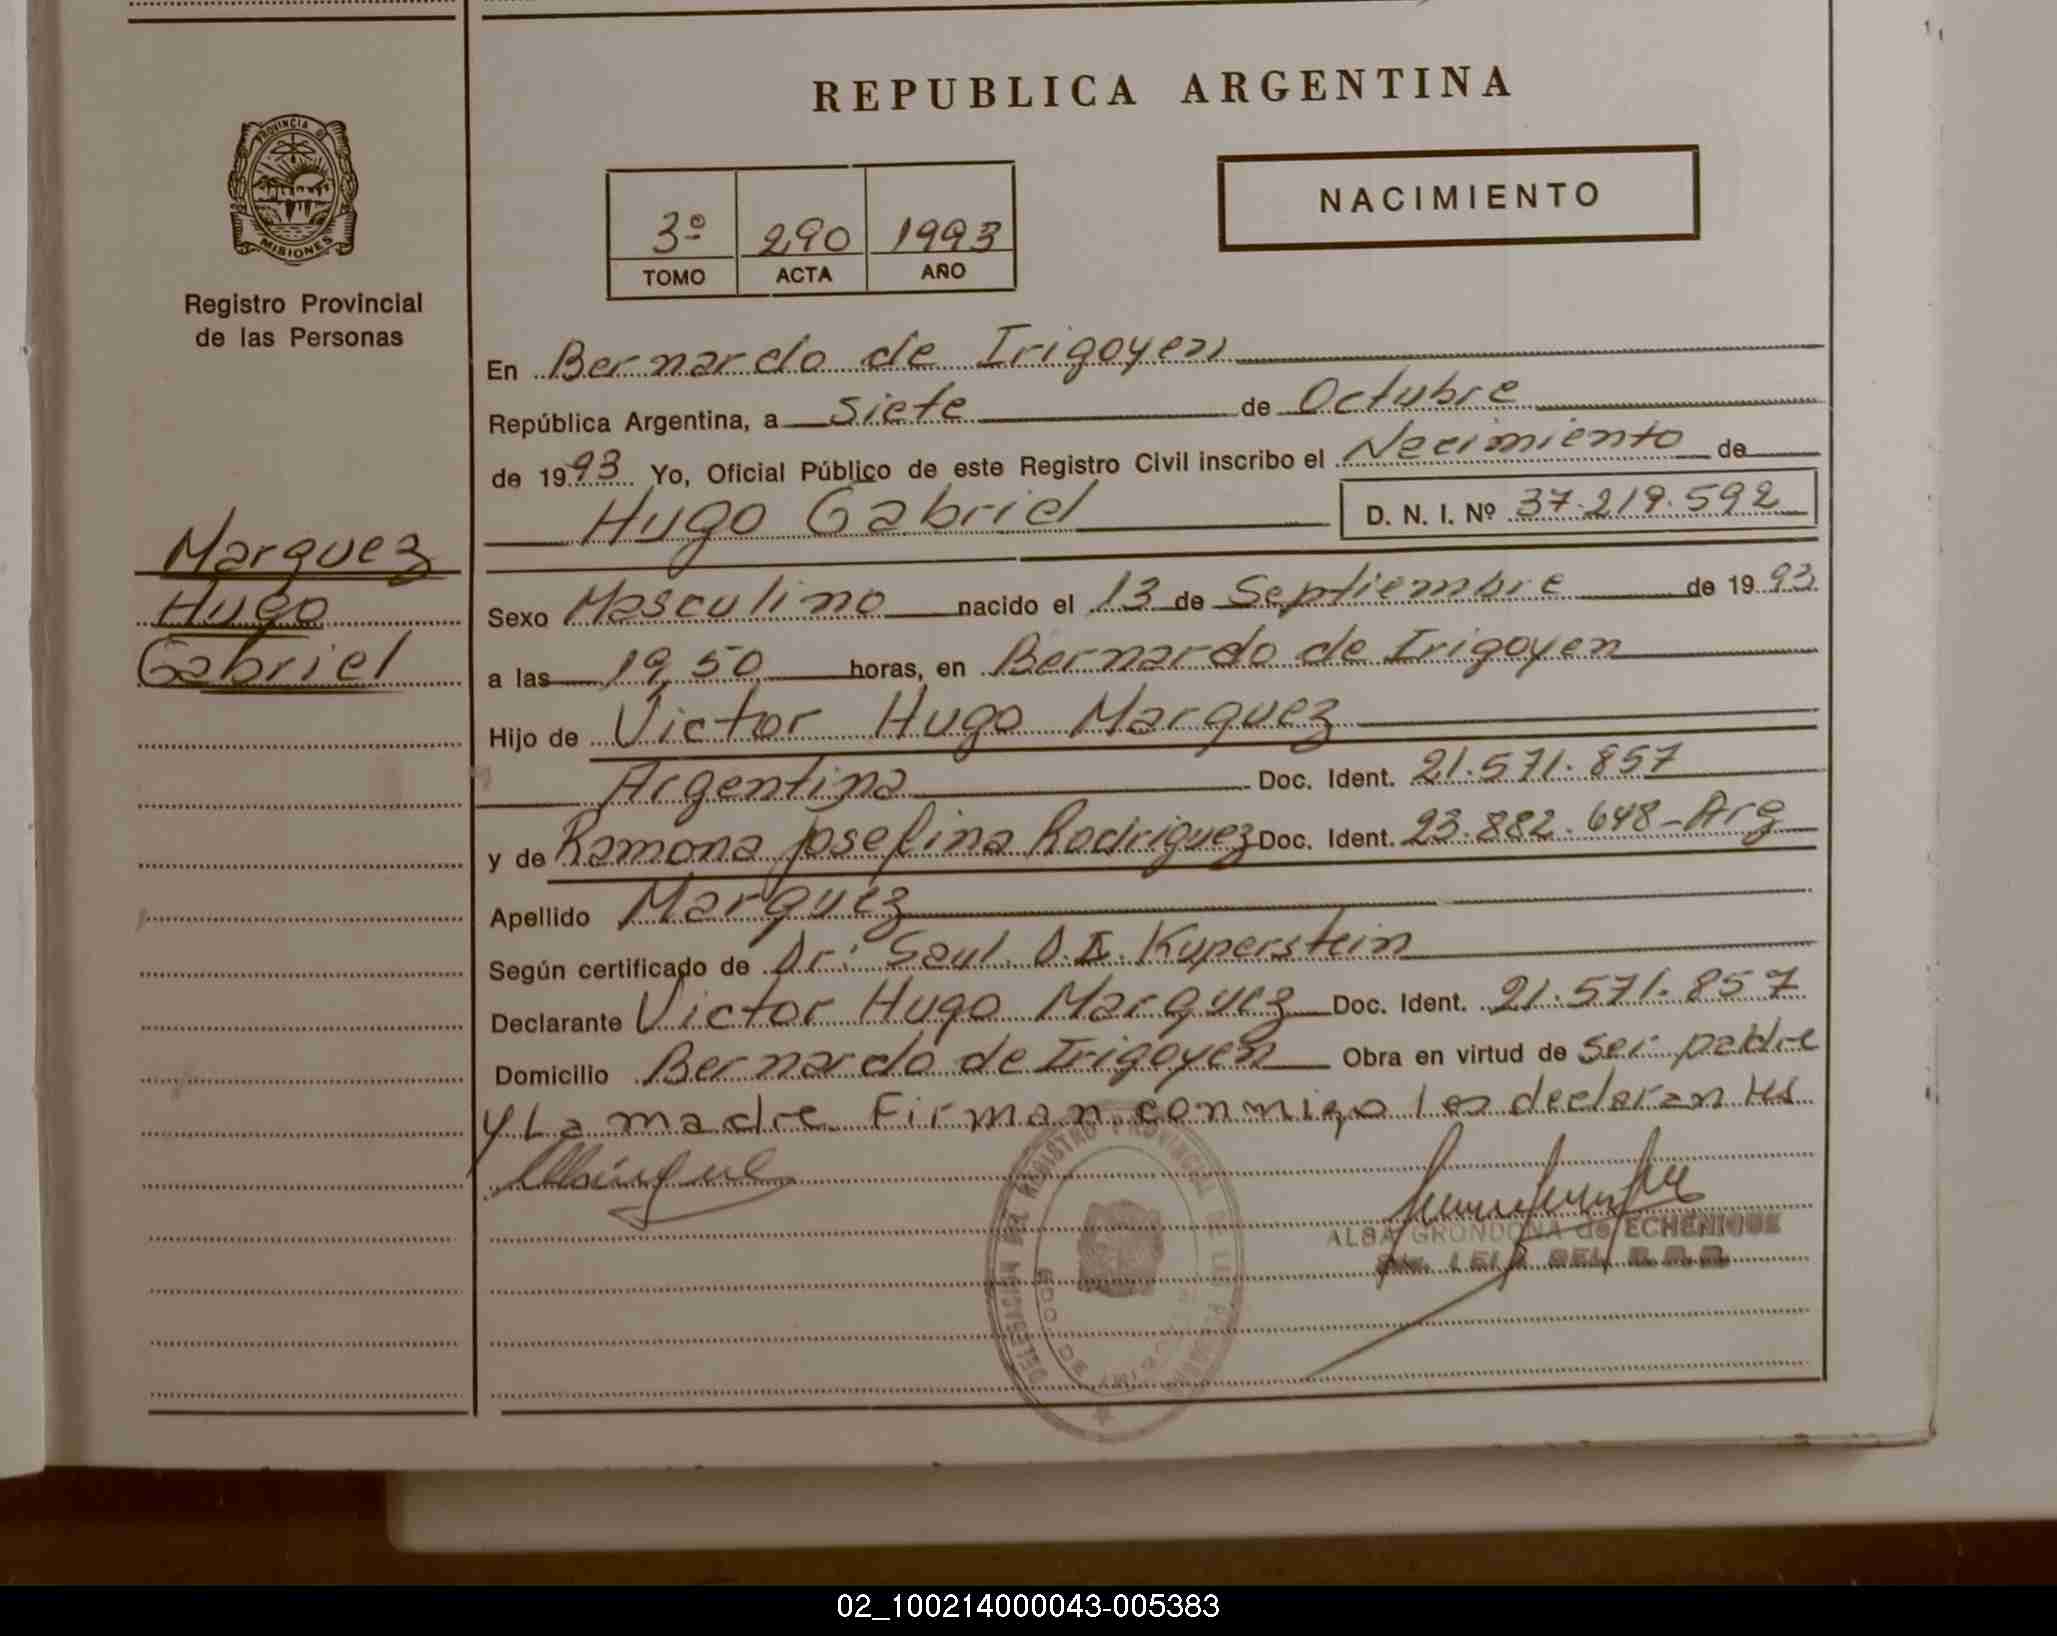 REPUBLICA ARGENTINA
PROVINCIA D
MISIONES
Registro Provincial
de las Personas
NACIMIENTO
3º 290 1993
TOMO ACTA AÑO
En Bernardo de Irigoyen
República Argentina, a siete de Octubre
de 1993 Yo, Oficial Público de este Registro Civil inscribo el Nacimiento de
Hugo Gabriel D. N. I. Nº 37.219.592
Marquez
Hugo
Gabriel
Sexo Masculino nacido el 13 de Septiembre de 1993
a las 19,50 horas, en Bernardo de Irigoyen
Hijo de Victor Hugo Marquez
Argentina Doc. Ident. 21.571.857
y de Ramona Josefina Rodriguez Doc. Ident. 23.882.648-Arg
Apellido Marquez
Según certificado de Dr: Saul. D.I. Kuperstein
Declarante Victor Hugo Marquez Doc. Ident. 21.571.857
Domicilio Bernardo de Irigoyen Obra en virtud de ser padre
y La madre Firman conmigo los declarantes
REGISTRO PROVINCIAL DE LAS PERSONAS
DELEGACION
ALBA GRONDONA de ECHENIQUE
DEL R.P.P.
02_100214000043-005383